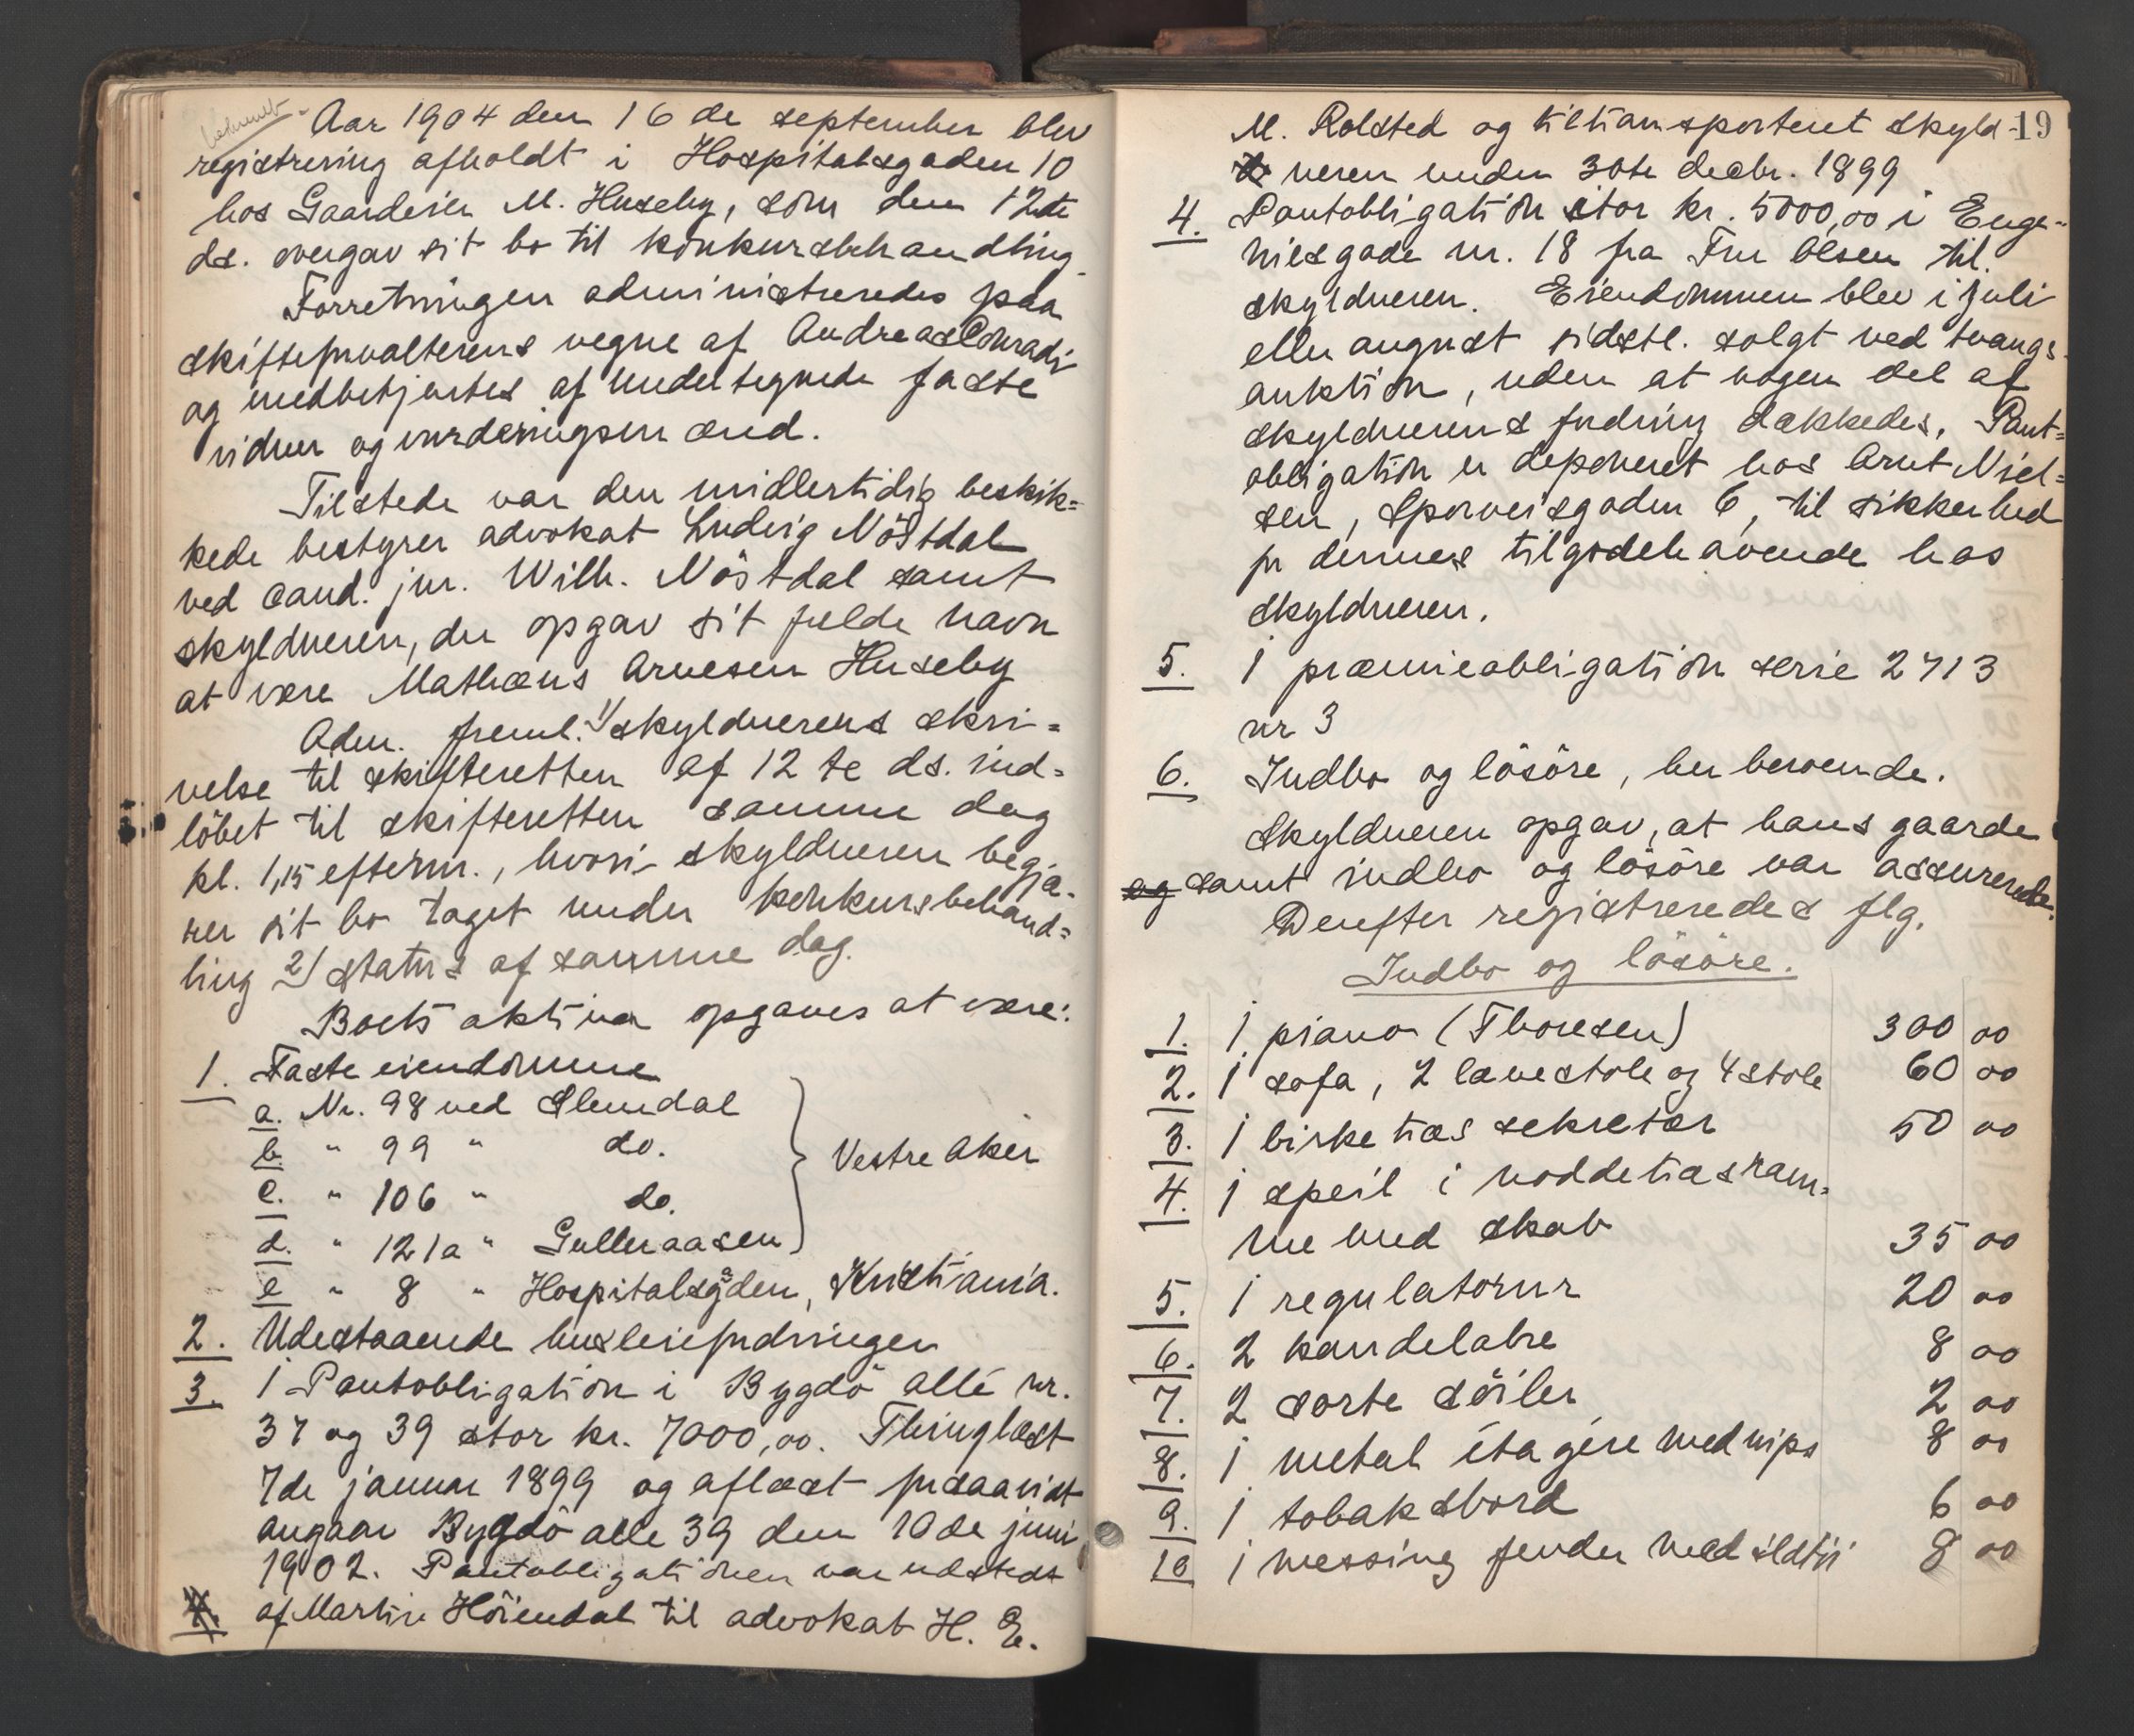 Aar 1904 den 16 de september blev
registrering afholdt i Hospitalsgaden 10
hos Gaardeier M. Huseby, som den 12te
ds. overgav sit bo til konkursbehandling.
Forretningen administreredes paa
skifteforvalterens vegne af Andreas Conradi
og medbetjentes af undertegnede faste
vidner og vurderingsmænd.
Tilstede var den midlertidig beskik=
kede bestyrer advokat Ludvig Nöstdal
ved cand. jur. Wilh. Nöstdal samt
skyldneren, der opgav sit fulde navn
at være Mathæus Arnesen Huseby
Adm. freml. 1/ skyldnerens skri=
velse til skifteretten af 12 te ds. ind=
löbet til skifteretten samme dag
kl. 1,15 efterm., hvori skyldneren begjæ-
rer sit bo taget under konkursbehand=
ling 2/ status af samme dag.
Boets aktiva opgaves at være:
1. Faste eiendomme
a. Nr. 98 ved Slemdal
b. " 99 " do.
c. " 106 " do. Vestre Aker
d. " 121a " Gulleraasen
e " 8 " Hospitalsgden, Kristiania.
2. Udestaaende husleiefordringer
3. 1 Pantobligation i Bygdö allé nr.
37 og 39 stor kr. 7000,00. Thinglæst
7de januar 1899 og aflæst forsaavidt
angaar Bygdö alle 39 den 10de juni
1902. Pantobligationen var udstedt
4. af Martin Höiendal til advokat H. E.
M. Rolsted og tiltransporteret skyld- 19
neren under 30te decbr. 1899
4. Pantobligation stor kr. 5000,00 i Euge=
niesgade nr. 18 fra Fru Olsen til
skyldneren. Eiendommen blev i juli
eller august sidstl. solgt ved tvangs-
auktion, uden at nogen del af
skyldnerens fordring dækkedes. Pant=
obligation er deponeret hos Arnt Niel=
sen, Sporveisgaden 6, til sikkerhed
for dennes tilgodehavende hos
skyldneren.
5. 1 præmieobligation serie 2713
nr 3
6. Indbo og lösöre, her beroende.
Skyldneren opgav, at hans gaarde
og samt indbo og lösöre var assurerede.
Derefter registreredes flg.
Indbo og lösöre.
1. 1 piano (Thoresen) 300 00
2. 1 sofa, 2 lænestole og 4 stole 60 00
3. 1 birketræs sekretær 50 00
4. 1 speil i noddetræsram=
me med skab 35 00
5. 1 regulatorur 20 00
6. 2 kandelabre 8 00
7. 2 sorte söiler 2 00
8. 1 metal étagére med nips 8 00
9. 1 tobaksbord 6 00
10 1 messing fender med ildtöi 8 00